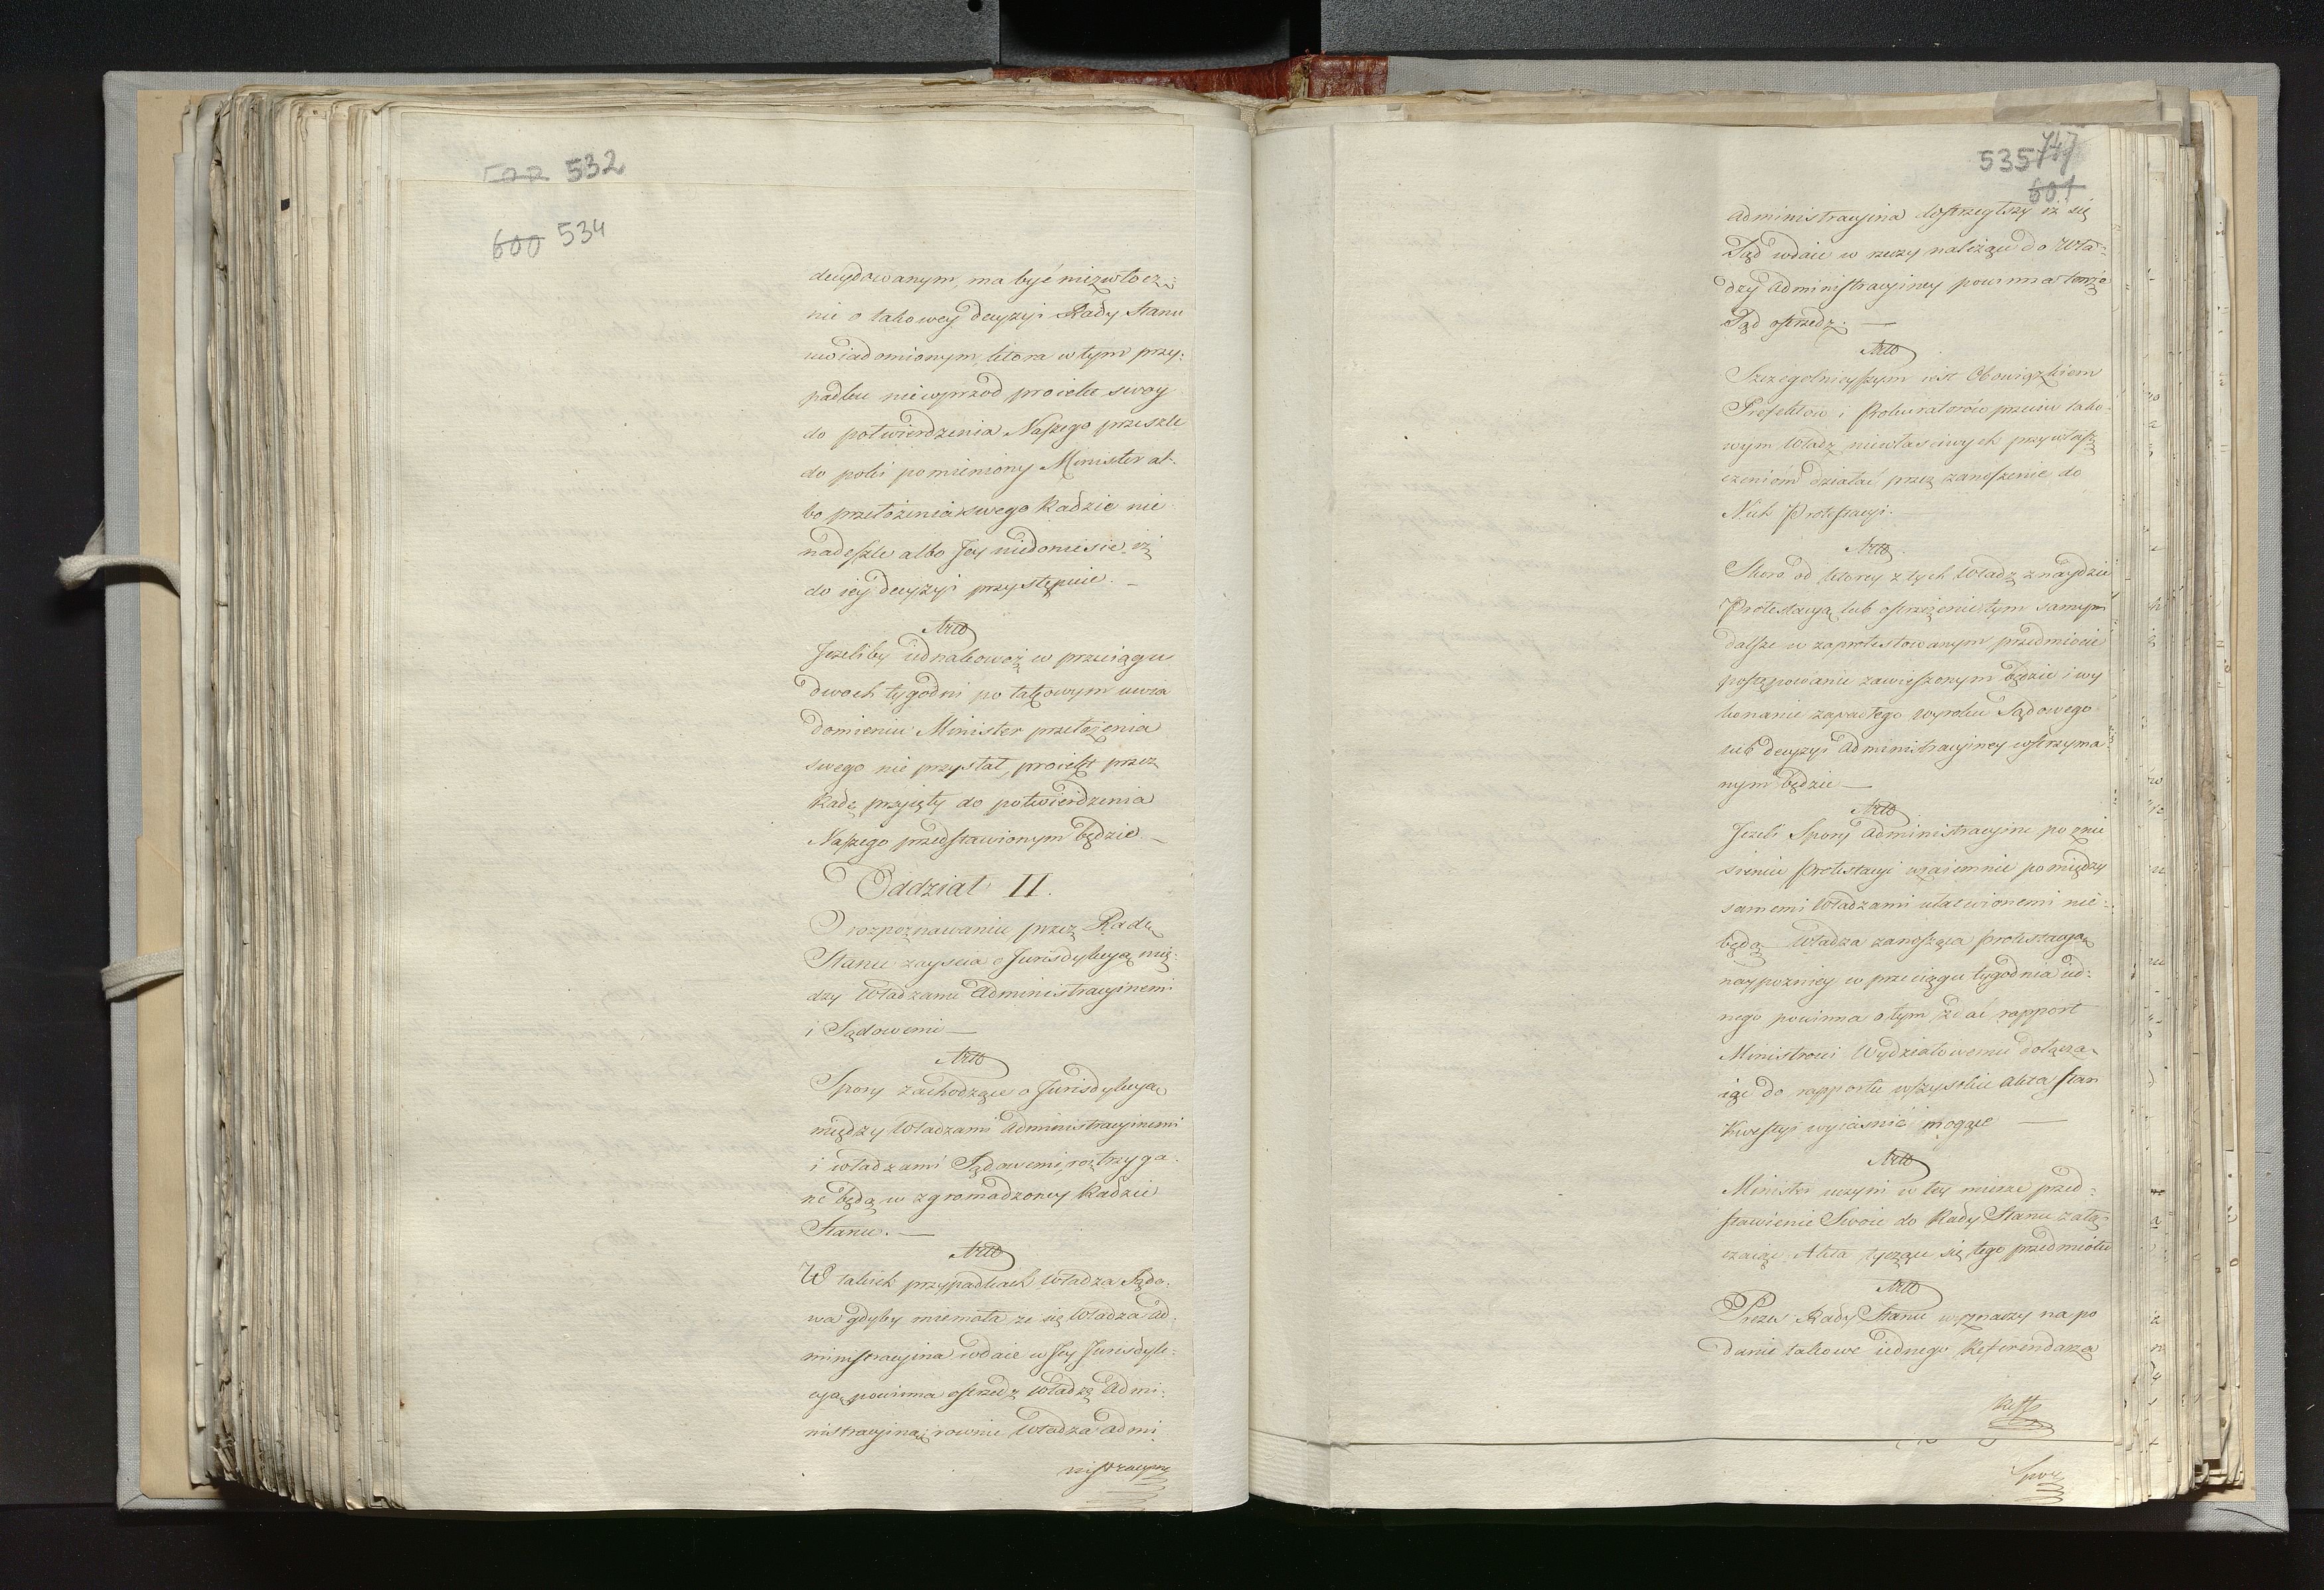 532
600 534
decydowanym, ma być niezwłocz:
nie o takowey decyzyi Rady Stanu
uwiadomionym, ktora w tym przy:
padku niewprzod proiekt swoy
do potwierdzenia Naszego przeszle
do poki pomieniony Minister al:
bo przełożenia swego Radzie nie
nadeszle albo Jey niedoniesie, iż
do iey decyzyi przystępuie. —
Art@
Jeżeliby iednakowoż w przeciągu
dwoch tygodni po takowym uwia
domieniu Minister przełożenia
swego nie przysłał, proiekt przez
Radę przyięty do potwierdzenia
Naszego przedstawionym będzie —
Oddział II.
O rozpoznawaniu przez Radę
Stanu zayscia o Jurisdykcyą mię:
dzy Władzami Administracyinemi
i Sądowemi —
Art@
Spory zachodzące o Jurisdykcyą
między Władzami Administracyinemi
i władzami Sądowemi, roztrzyga
ne będą w zgromadzoney Radzie
Stanu. —
Art@
W takich przypadkach Władza Sądo:
wa gdyby mniemała ze się Władza ad
ministracyina wdaie w Jey Jurisdyk:
cyą, powinna ostrzedz Władzę Admi:
nistracyiną; rownie Władza admi
nistracyina
535 747
601
administracyina dostrzegłszy iż się
Sąd wdaie w rzeczy należące do Wła:
dzy Administracyiney powinna tenże
Sąd ostrzedz. —
Art@
Szczegolnieyszym iest Obowiązkiem
Prefektow i Prokuratorów przeciw tako
wym Władz niewłasciwych przywłasz
czeniom działać przez zanoszenie do
Nich Protestacyi.
Art@
Skoro od ktorey z tych Władz znaydzie
Protestacyą lub ostrzeżenie tym samym
dalsze w zaprotestowanym przedmiocie
postępowanie zawieszonym będzie i wy
konanie zapadłego wyroku Sądowego
lub decyzyi administracyiney wstrzyma:
nym będzie —
Art@
Jeżeli Spory administracyine po znie
sieniu Protestacyi wzaiemnie pomiędzy
samemi Władzami ułatwionemi nie:
będą Władza zanosząca protestacyą
naypozniey w przeciągu tygodnia ied:
nego powinna o tym zdać rapport
Ministrowi Wydziałowemu dołącza:
iąc do rapportu wszystkie akta stan
Kwestyi wyiasnić mogące —
Art@
Minister uczyni w tey mierze przed:
stawienie Swoie do Rady Stanu załą:
czaiąc Akta tyczące się tego przedmiotu
Art@
Prezes Rady Stanu wyznaczy na po
danie takowe iednego Referendarza